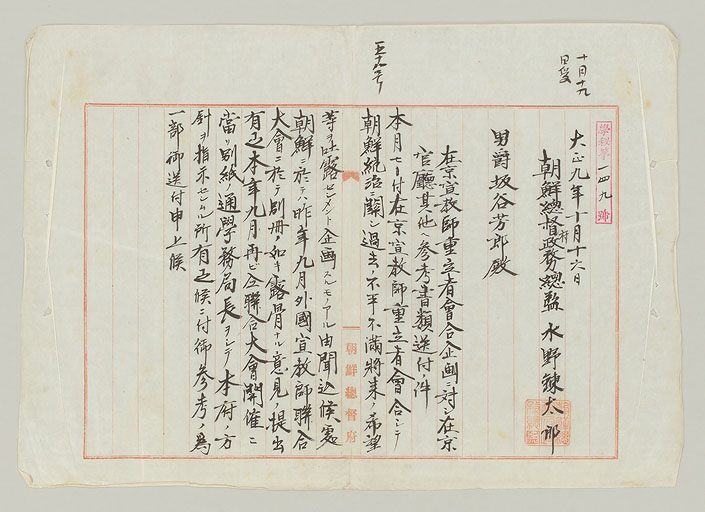 十月十九
日受
學秘第一四九號
大正九年十月十六日
朝鮮總督府政務總監 水野錬太郎
男爵 坂谷芳郎殿
在京宣教師重立者會合企画ニ対シ在京
官廳其他ヘ参考書類送付ノ件
本月七日付在京宣教師重立者會合シテ
朝鮮統治ニ関シ過去ノ不平不満將来ノ希望
等ヲ吐露セシメント企画スルモノアル由聞込候處
朝鮮ニ於テハ昨年九月外國宣教師聯合
大會ニ於テ別冊ノ如キ露骨ナル意見ノ提出
有之本年九月再ビ仝聯合大會開催ニ
當リ別紙ノ通學務局長ヲシテ本府ノ方
針ヲ指示セシメル所有之候ニ付御参考ノ為
一部御送付申上候
朝鮮總督府